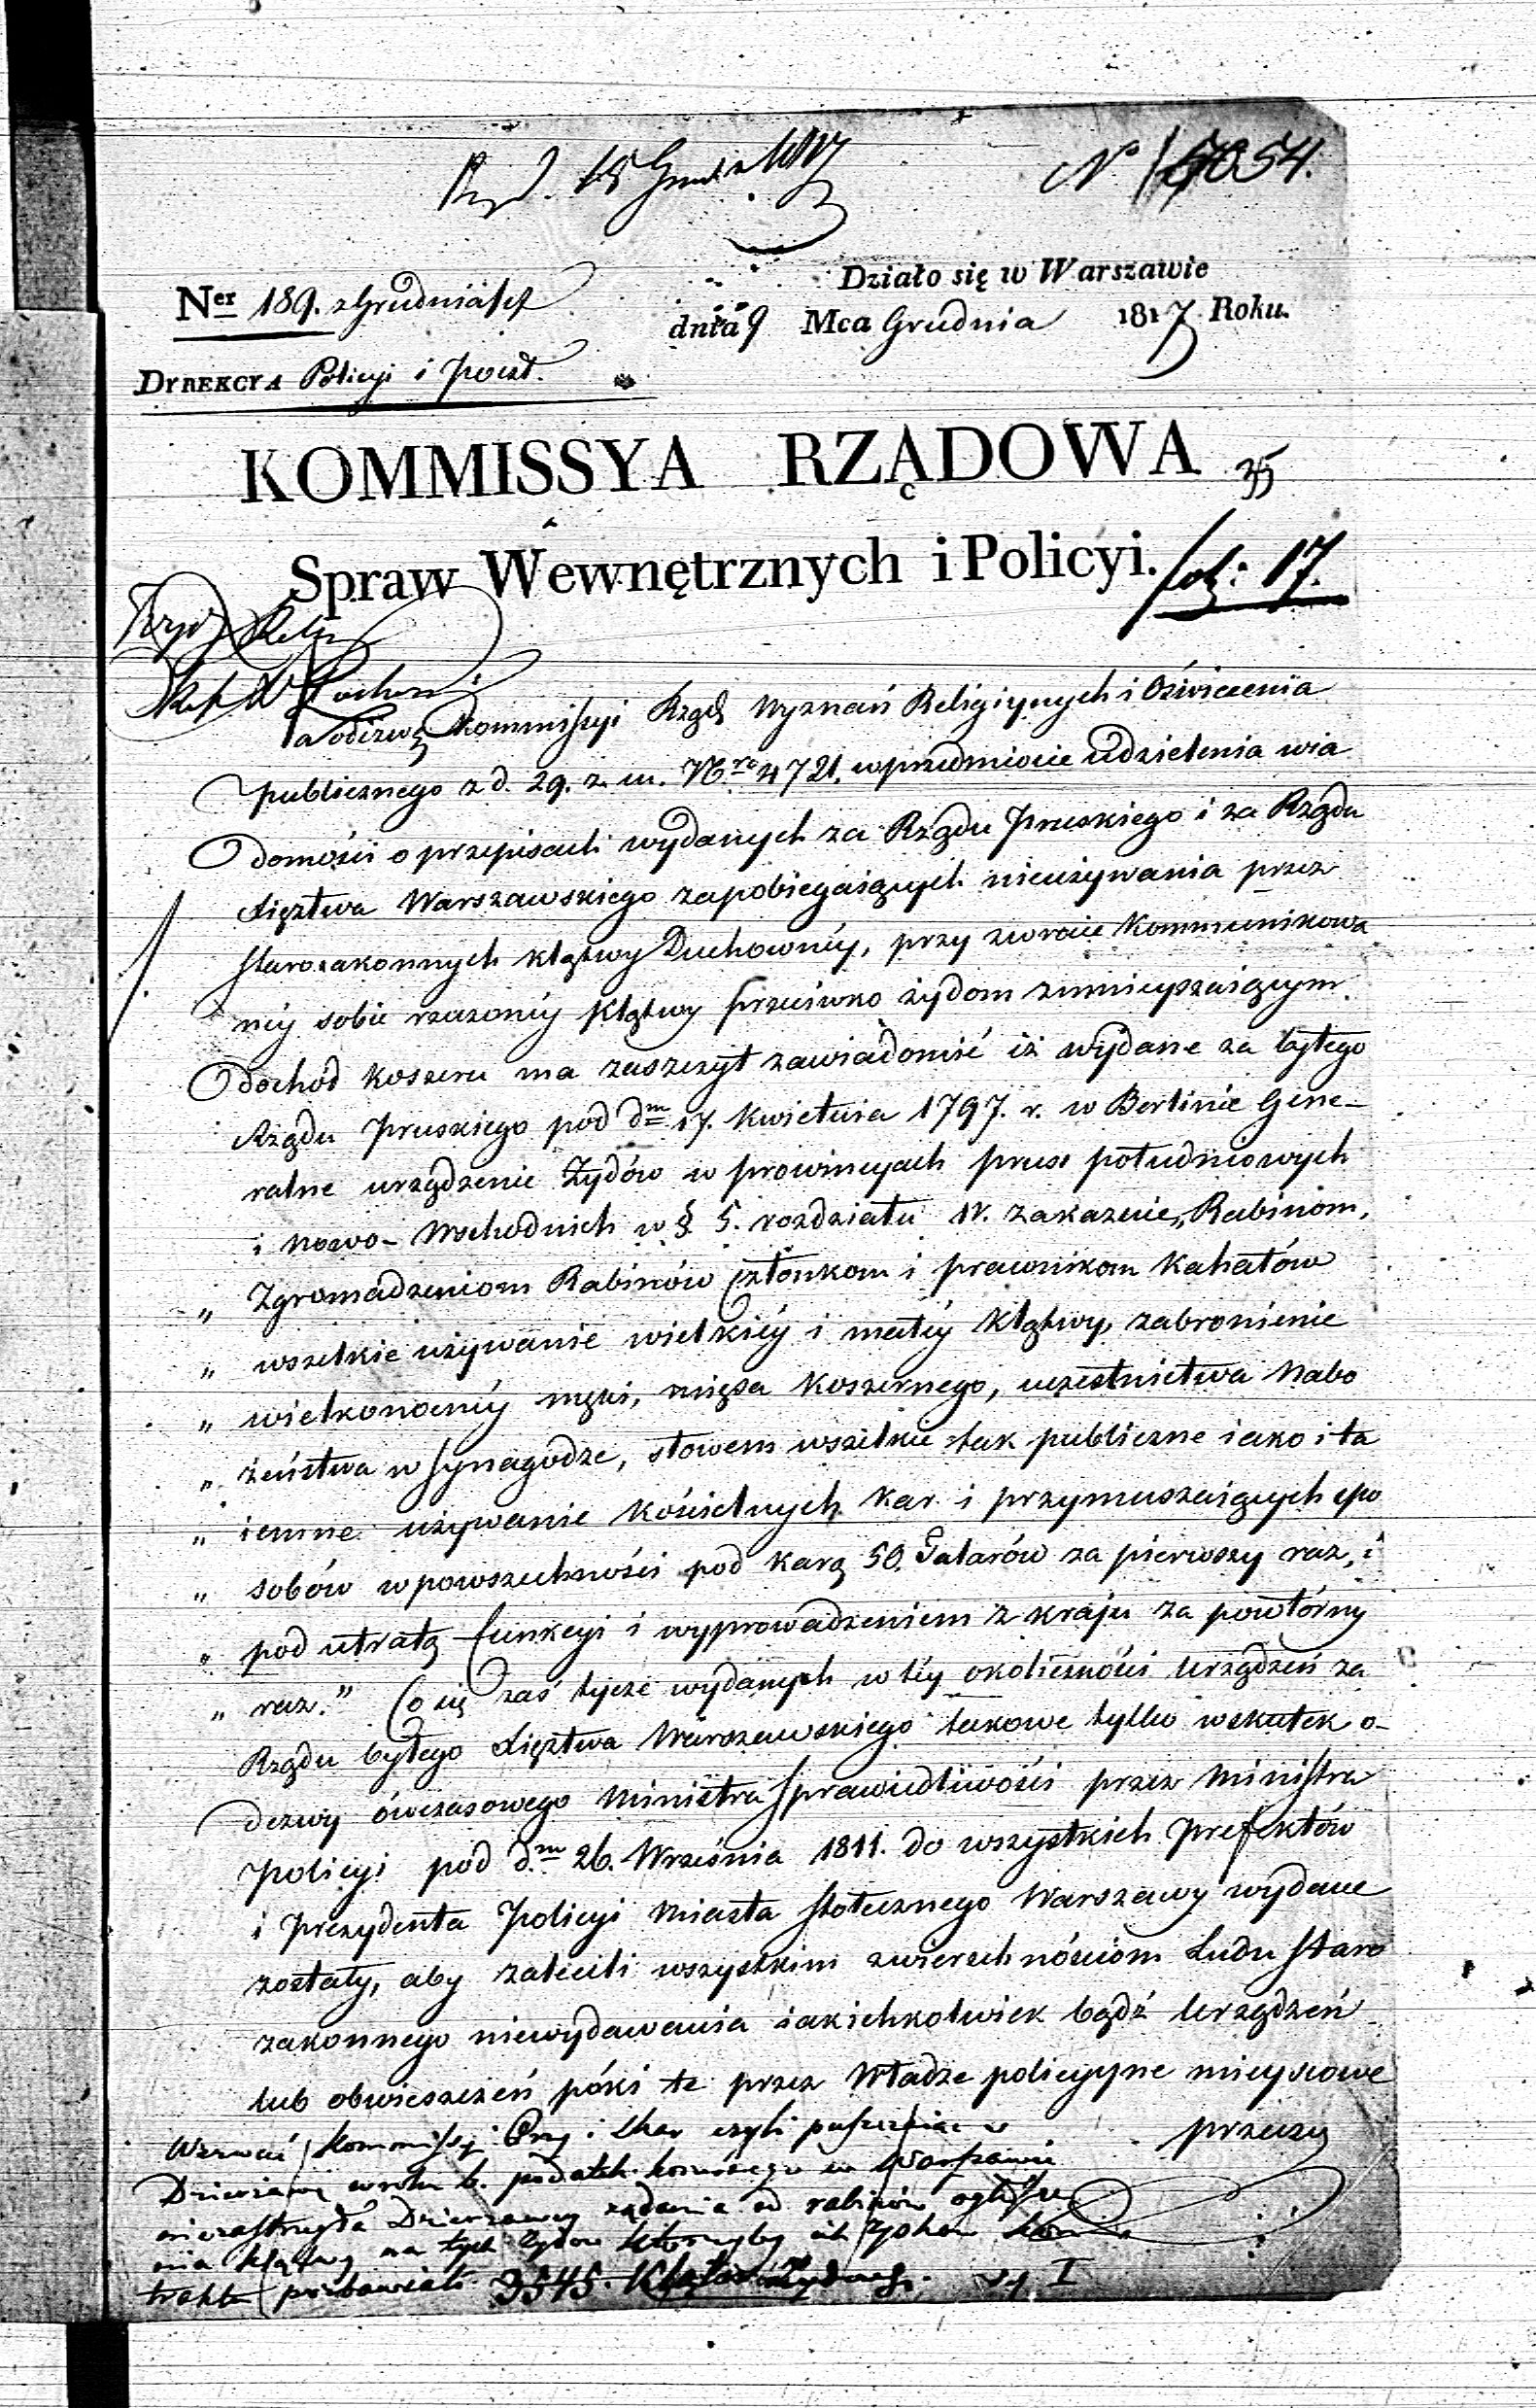 15 Grud 1817
No 17054.
Działo się w Warszawie
Ner 189. z Grudnia
dnia 9 Mca Grudnia 1817 Roku.
DYREKCYA Policyi i Poczt.
KOMMISSYA RZĄDOWA
35
Spraw Wewnętrznych i Policyi.
fol: 17.
Na odezwę Kommissyi Rządı Wyznań Religiynych i Oświecenia
publicznego z d. 29. z. m. Nro 4721. w przedmiocie udzielenia wia
domości o przepisach wydanych za Rządu Pruskiego i za Rządu
Xięztwa Warszawskiego zapobiegaiących nieużywania przez
starozakonnych klątwy Duchownéy, przy zwrocie kommunikowa
néy sobie rzeczonéy klątwy przeciwko żydom zmnieyszaiącym
dochód koszeru ma zaszczyt zawiadomić iż wydane za byłego
Rządu Pruskiego pod dm 17. Kwietnia 1797. r. w Berlinie Gene-
ralne urządzenie Żydów w prowincyach pruss południowych
i nowo-Wschodnich w § 5. rozdziału IV. zakazuie „Rabinom,
„ Zgromadzeniom Rabinów Członkom i prawnikom Kahałów
„ wszelkie używanie wielkiéy i małéy klątwy, zabronienie
„ wielkonocnéy mąki, mięsa koszernego, uczestnictwa Nabo
„ żeństwa w Synagodze, słowem wszelkie tak publiczne iako i ta
„ iemne używanie kościelnych kar i przymuszaiących spo
„ sobów w powszechności pod karą 50. Talarów za pierwszy raz, i
„ pod utratą funkcyi i wyprowadzeniem z kraju za powtórny
„ raz.” Co się zaś tycze wydanych w téy okoliczności urządzeń za
Rządu byłego Xięztwa Warszawskiego takowe tylko wskutek o-
dezwy ówczasowego Ministra Sprawiedliwości przez Ministra
Policyi pod dm 26. Września 1811. do wszystkich Prefektów
i Prezydenta Policyi Miasta stołecznego Warszawy wydane
zostały, aby zalecili wszystkim zwierzchnościom Ludu staro
zakonnego niewydawania iakichkolwiek bądź Urządzeń
lub obwieszczeń póki te przez Władze policyyne mieyscowe
przeyrzą
Wezwać Kommissyi Przy i Skar czyli puszczaiąc w
Dzierżawę w roku b. podatek koszernego w Warszawie
niezastrzegła Dzierżawcy żądania od rabinów ogłosze
nia klątwy na tych Żydów którzyby ich zysków kon
traktu pozbawiali. 3545. Klątwa Żydowska. I